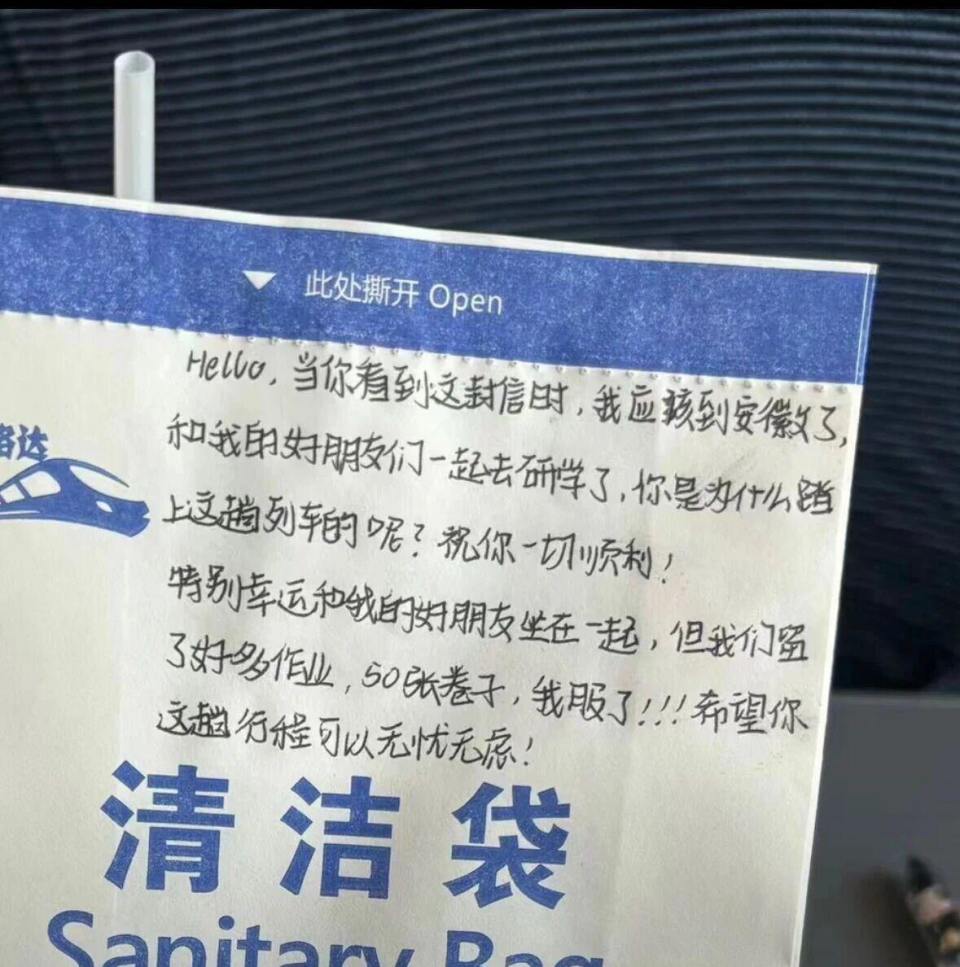 此处撕开 Open
Hello,当你看到这封信时,我应该到安徽了,
和我的好朋友们一起去研学了,你是为什么踏
上这趟列车的呢?祝你一切顺利!
特别幸运和我的好朋友坐在一起,但我们留
了好多作业,50张卷子,我服了!!!希望你
这趟行程可以无忧无虑!
清洁袋
Sanitary Bag